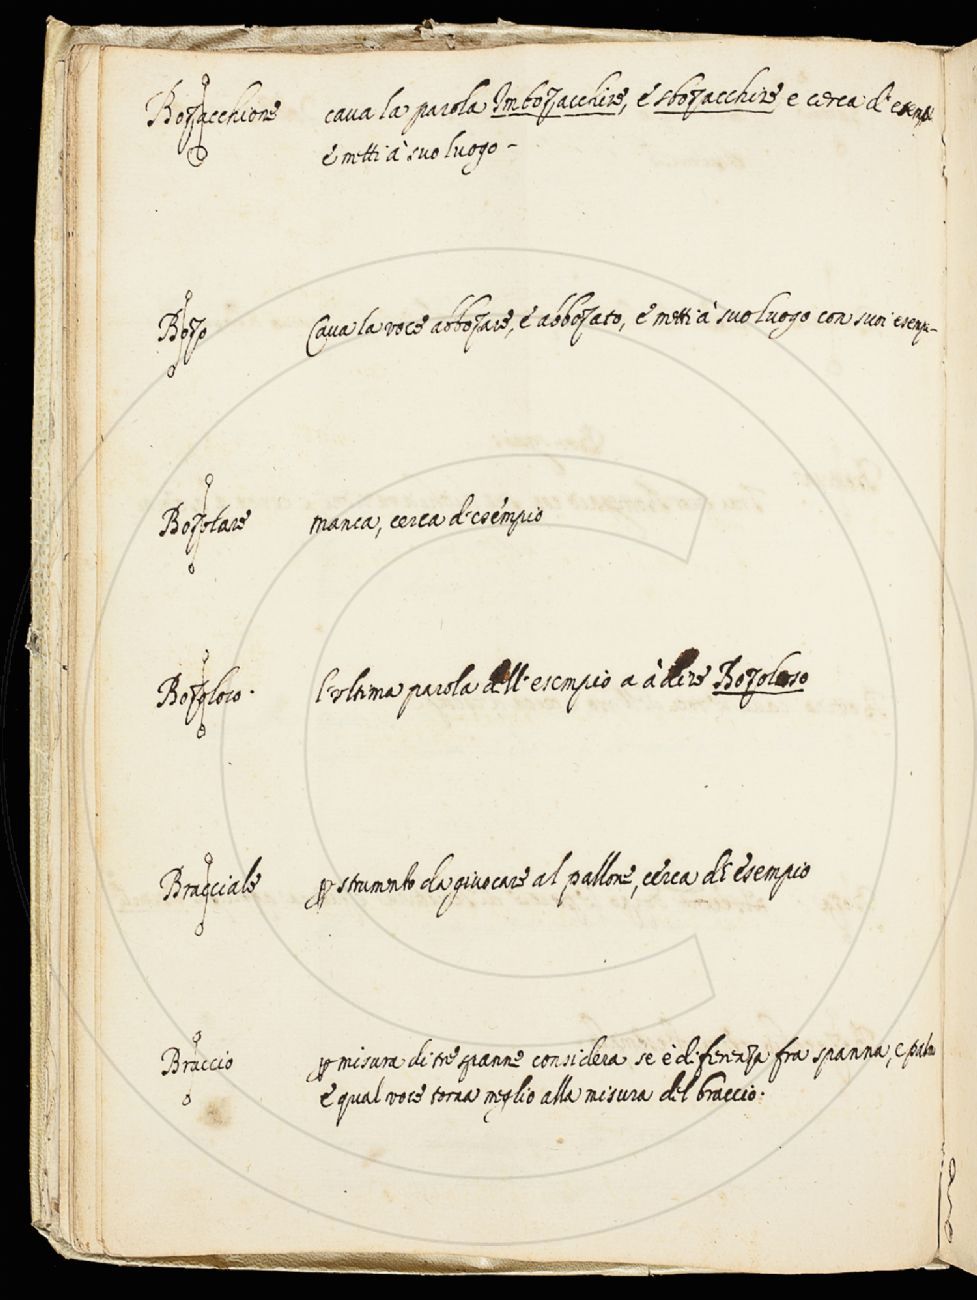 Bozzacchione cava la parola Imbozacchire, é sbozacchire e cerca d'
é metti à suo luogo -
Bozo Cava la voce abbozare, é abbozato, é metti à suo luogo con suoi esempi-
Bozolare manca, cerca d'esempio
Bozoloso. l'ultima parola dell'esempio a à dire Bozoloso
Bracciale p strumento da giuocare al pallone, cerca di esempio
Braccio p misura di tre spanne considera se è diferenza fra spanna, e palmo
é qual voce torna meglio alla misura del braccio.